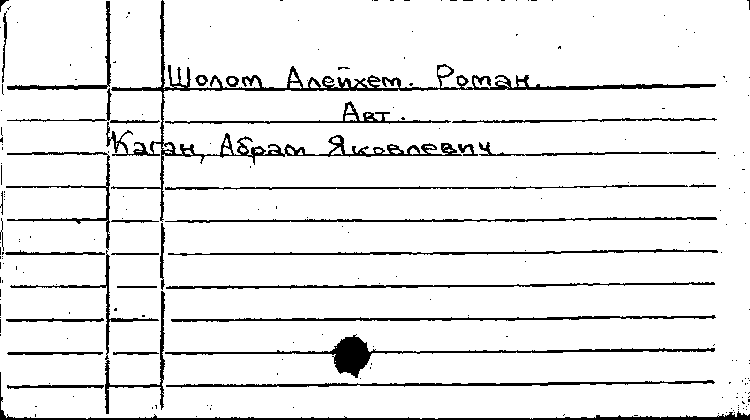 Шолом Алейхем. Роман.
Авт.
Каган, Абрам Яковлевич